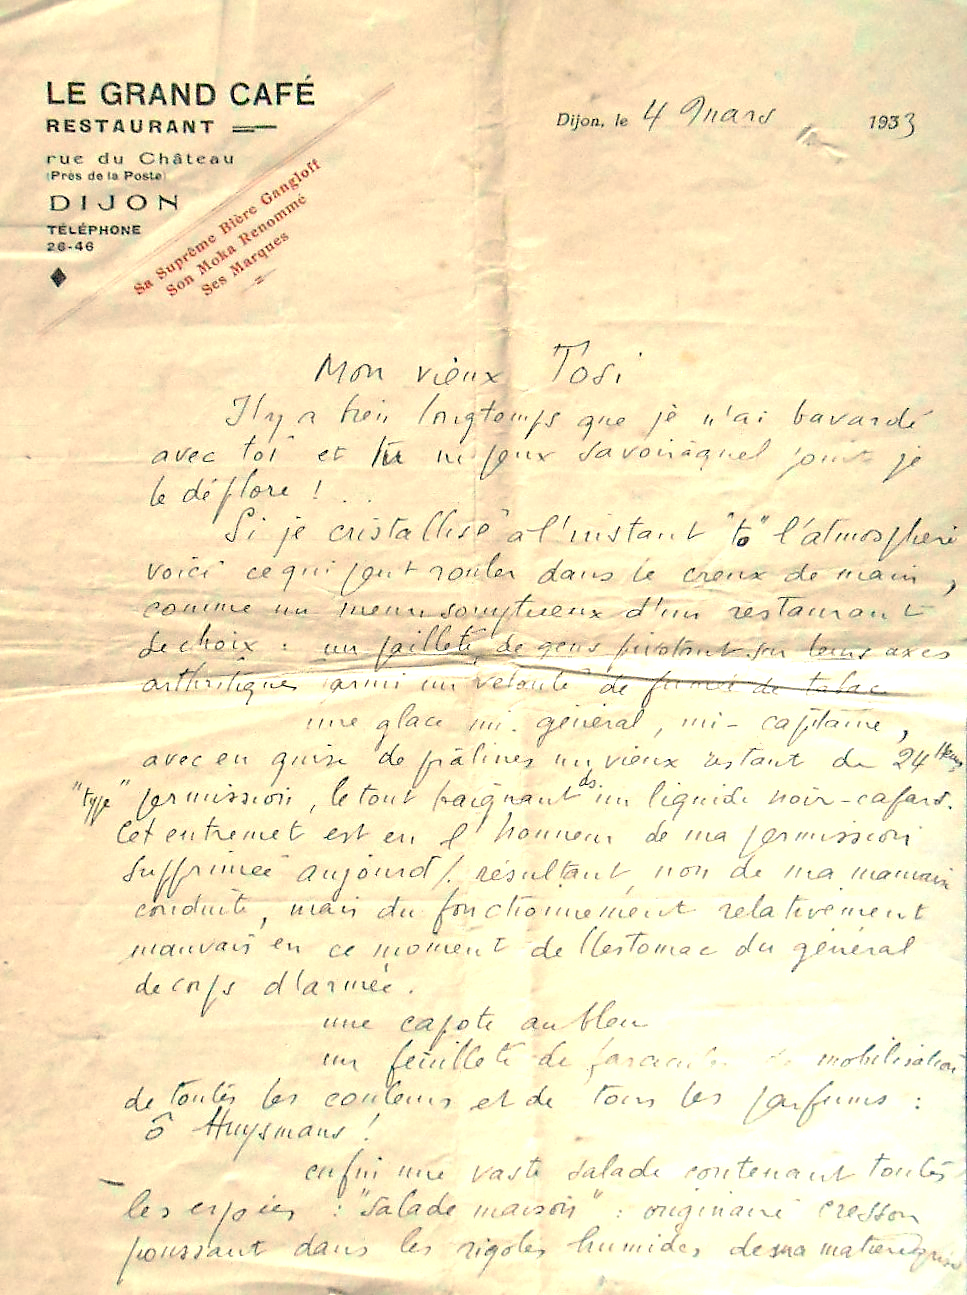 LE GRAND CAFÉ
RESTAURANT
rue du Château
(Près de la Poste)
DIJON
TÉLÉPHONE
26-46
Sa Suprême Bière Gangloff
Son Moka Renommé
Ses Marques
Dijon, le 4 Mars 1933
Mon vieux Tosi
Il y a bien longtemps que je n'ai bavardé
avec toi et tu ne peux savoir à quel point je
le déplore ! ..
Si je cristallise à l'instant "to" l'atmosphère
voici ce qui peut rouler dans le creux de main,
comme un menu somptueux d'un restaurant
de choix : un pailleté de gens pivotant sur leurs axes
arthritiques parmi un velouté de fumée de tabac
une glace mi-général, mi-capitaine,
avec en guise de pralines un vieux restant de 24 Heures
"type" permission, le tout baignant ds un liquide noir-cafard.
Cet entremet est en l'honneur de ma permission
supprimée aujourd/. résultant, non de ma mauvaise
conduite, mais du fonctionnement relativement
mauvais en ce moment de l'estomac du général
de corps d'armée.
une capote au bleu
un feuilleté de mobilisation
de toutes les couleurs et de tous les parfums :
ô Huysmans !
enfin une vaste salade contenant toutes
les espèces : "salade maison" : originaire cresson
poussant dans les rigoles humides de ma matière grise